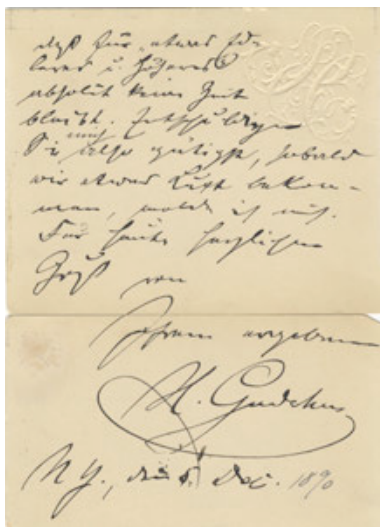 daß für etwas Ide-
leres u. Höheres
absolut keine Zeit
bleibt. Entschuldigen
Sie mich also gütigst, sobald
wir etwas Luft bekom-
men, melde ich mich.
Für heute herzlichen
Gruß von
Ihrem ergebenen
H. Gudehus
N Y., den 6. Dec. 1890